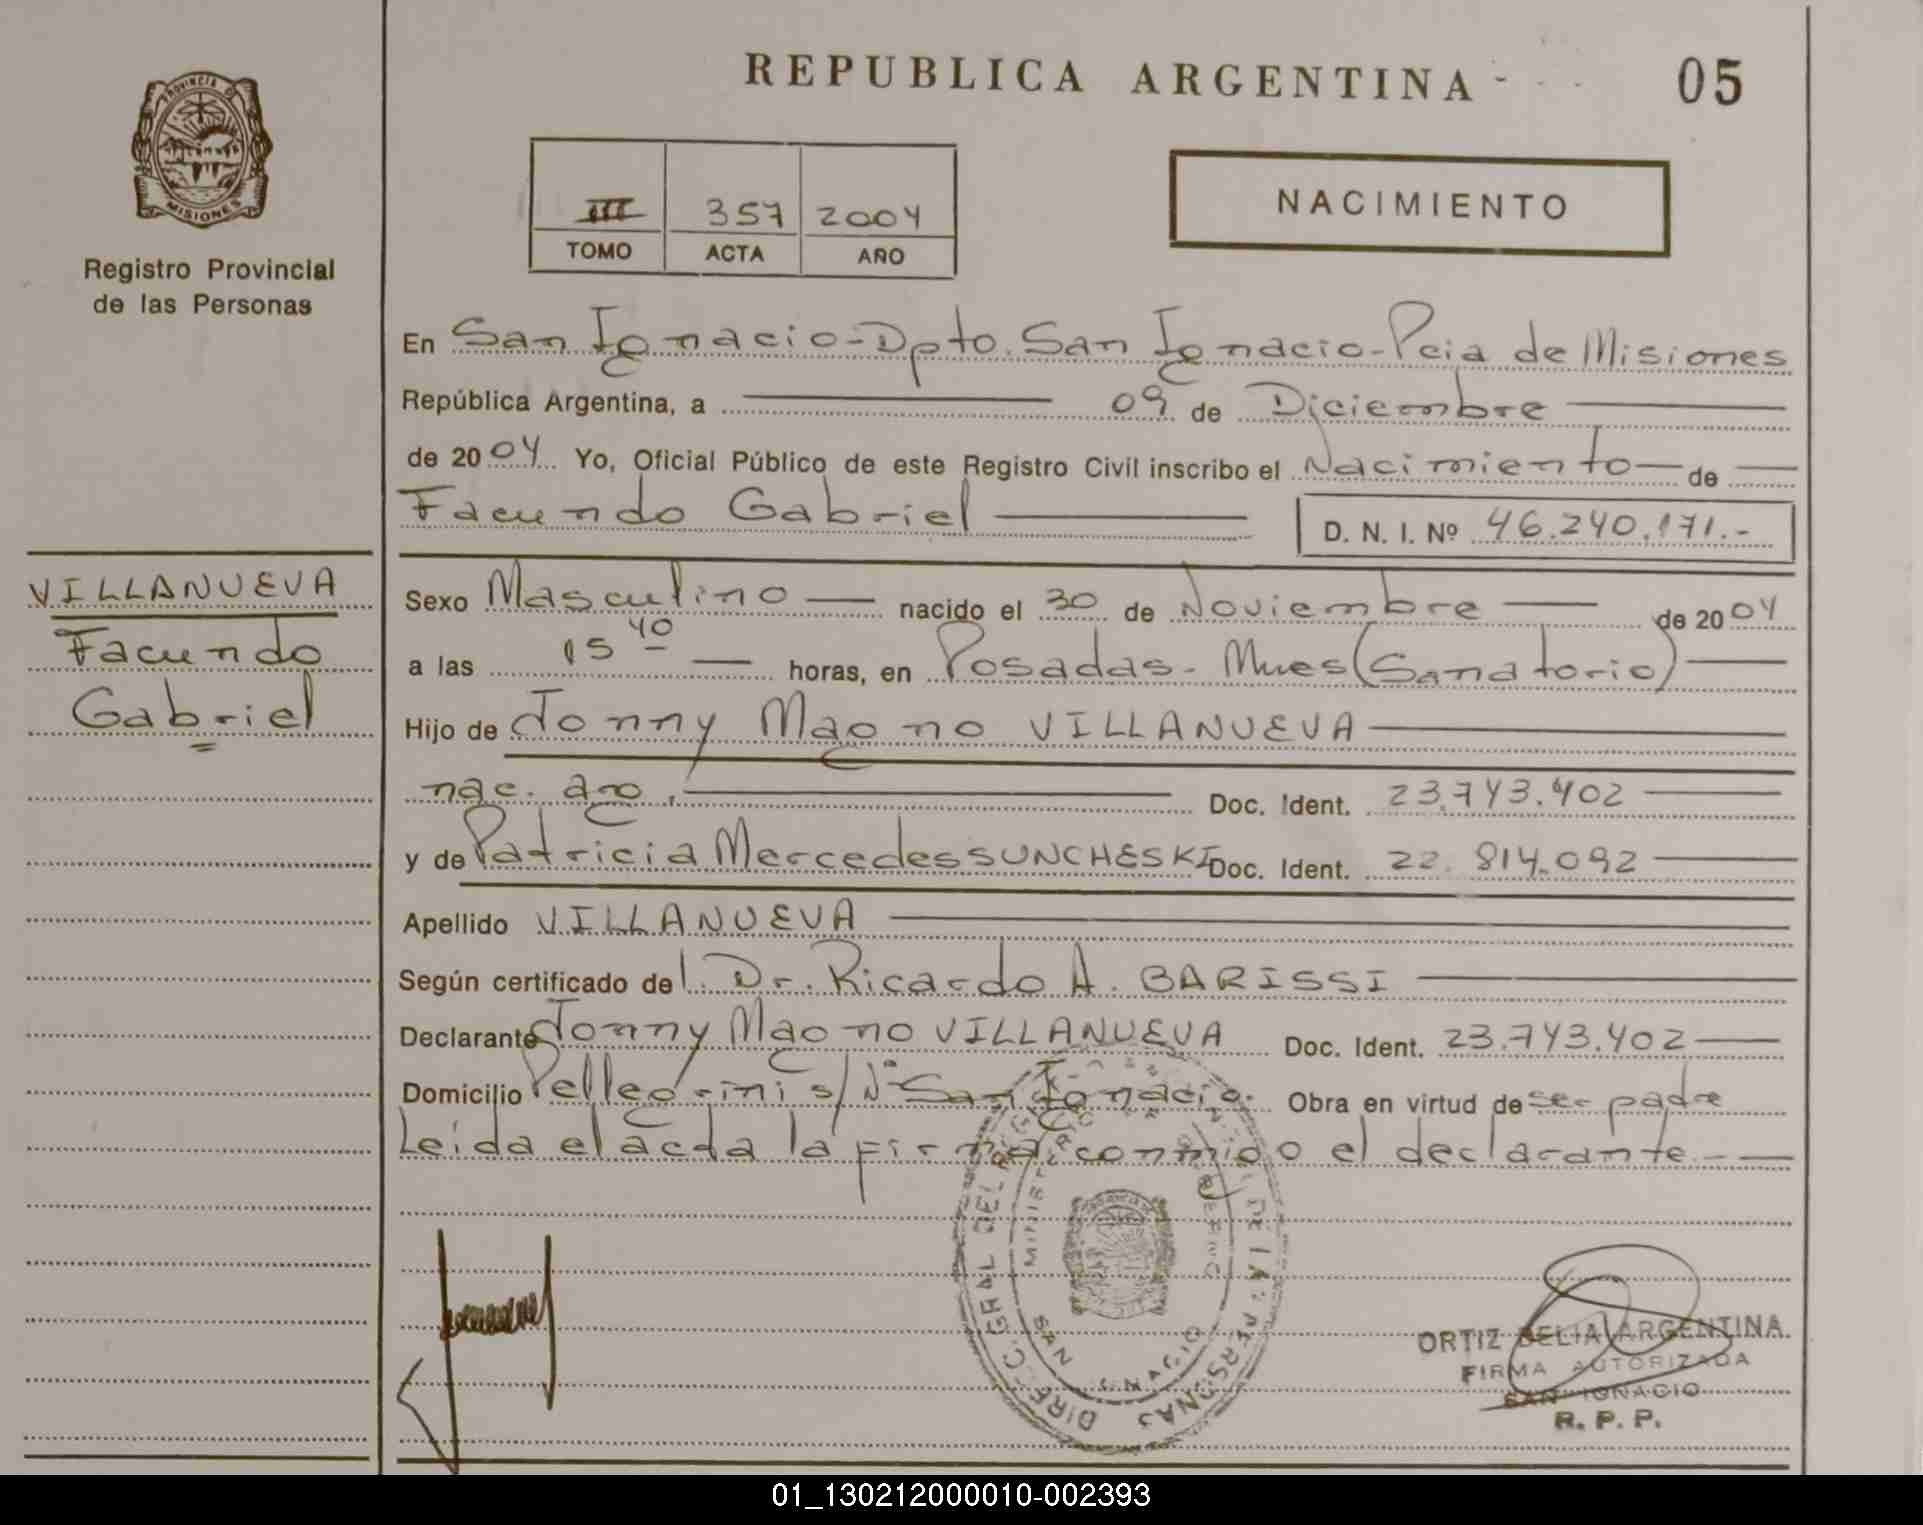 REPUBLICA ARGENTINA
05
PROVINCIA D MISIONES
Registro Provincial
de las Personas
III 357 2004
TOMO ACTA AÑO
NACIMIENTO
En San Ignacio-Dpto. San Ignacio-Pcia de Misiones
República Argentina, a 09 de Diciembre
de 2004 Yo, Oficial Público de este Registro Civil inscribo el Nacimiento de
Facundo Gabriel
D. N. I. Nº 46.240.171.-
VILLANUEVA
Facundo
Gabriel
Sexo Masculino nacido el 30 de Noviembre de 2004
a las 15 40 horas, en Posadas- Mnes (Sanatorio)
Hijo de Jonny Magno VILLANUEVA
nac. arg. Doc. Ident. 23.743.402
y de Patricia Mercedes SUNCHESKI Doc. Ident. 22.814.092
Apellido VILLANUEVA
Según certificado del Dr. Ricardo A. BARISSI
Declarante Jonny Magno VILLANUEVA Doc. Ident. 23.743.402
Domicilio Pellegrini s/Nº San Ignacio. Obra en virtud de ser padre
Leida el acta la firma conmigo el declarante.-
DIREC. GRAL DEL PERSONAS
SAN IGNACIO
ORTIZ DELIA ARGENTINA
FIRMA AUTORIZADA
SAN IGNACIO
R. P. P.
01_130212000010-002393